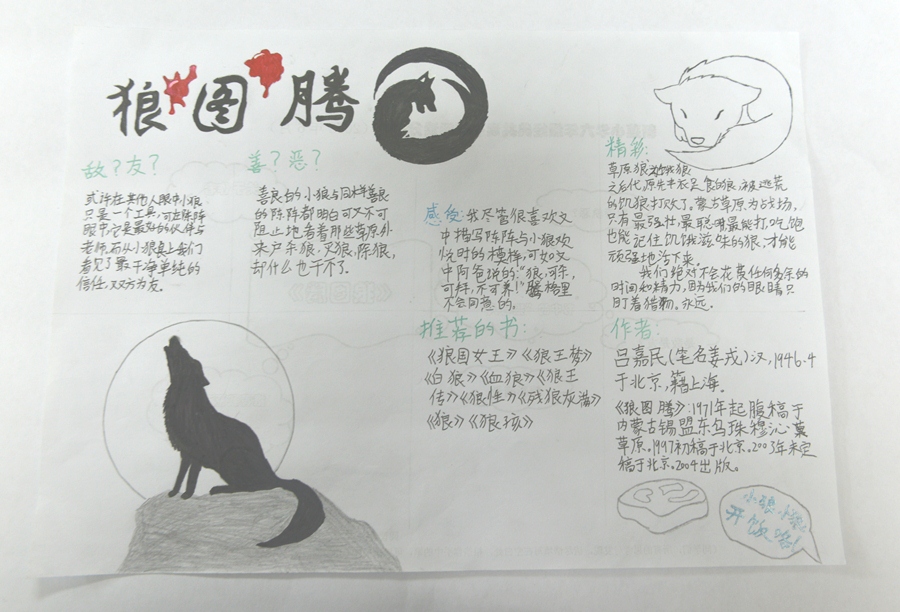 狼图腾
敌?友?
或许在其他人眼中小狼
只是一个工具,可在陈阵
眼中,它是最好的伙伴与
老师,而从小狼身上我们
看见了最干净单纯的
信任,双方为友。
善?恶?
喜良白的小狼与同样善良
的陈阵都明白可又不可
阻止地看着那些草原外
来户杀狼,灭狼,陈狼,
却什么也干不了。
感受:我尽管很喜欢文
中描写陈阵与小狼欢
悦时的模样,可如文
中阿爸说的:“狼,可杀,
可拜,不可养!”腾格里
不会同意的。
推荐的书:
《狼国女王》《狼王梦》
《白狼》《血狼》《狼王
传》《狼性》《残狼灰满》
《狼》《狼孩》
精彩:
草原狼
之后代,原先丰衣足食的狼,被逃荒
的饥狼打败了。蒙古草原为战场,
只有最强壮,最聪明最能打,吃饱
也能记住饥饿滋味的狼,才能
顽强地活下来。
我们绝对不会花费任何多余的
时间和精力,因为我们的眼睛只
盯着猎物。永远.
作者:
吕嘉民(笔名姜戎)汉,1946.4
于北京,籍上海。
《狼图腾》:1971年起腹稿于
内蒙古锡盟东乌珠穆沁
草原。1997初稿于北京。2003年末定
稿于北京。2004出版。
小狼,小狼,
开饭咯!